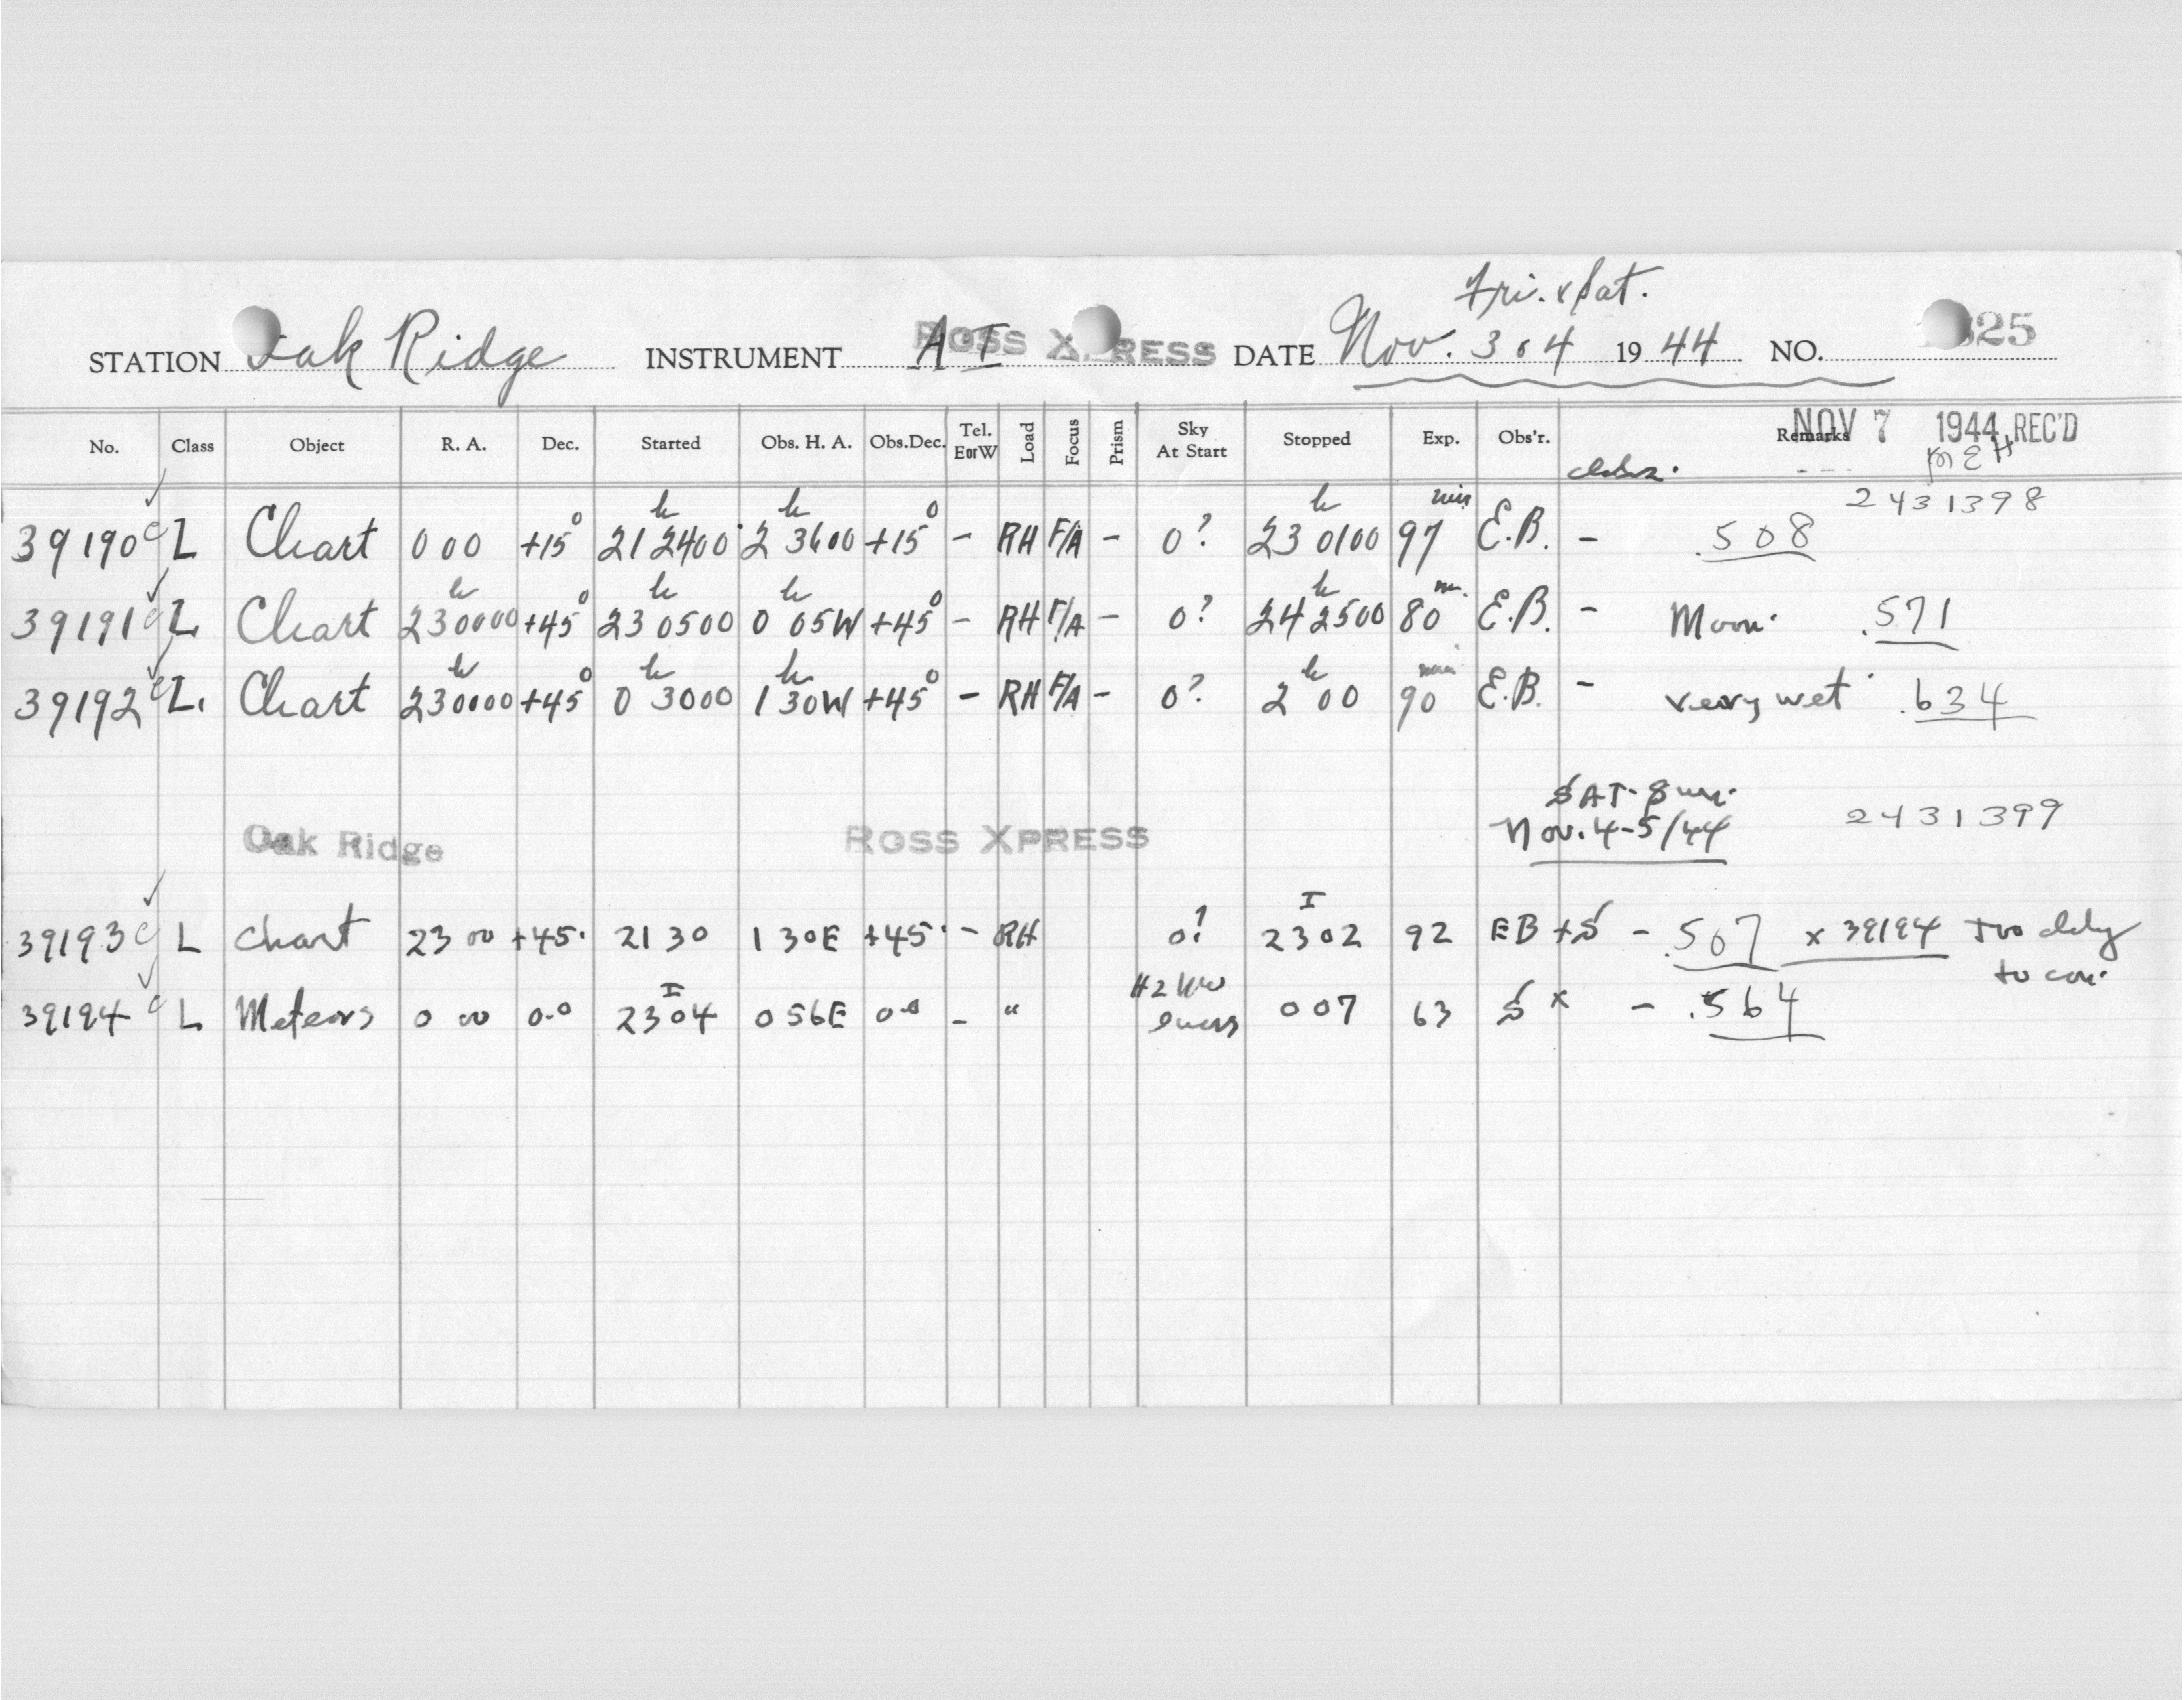 Fri. & Sat.
STATION Oak Ridge INSTRUMENT AI ROSS XPRESS DATE Nov. 3 & 4 1944 NO. 25
No. Class Object R. A. Dec. Started Obs. H. A. Obs.Dec. Tel. EorW Load Focus Prism Sky At Start Stopped Exp. Obs'r. Remarks
NOV 7 1944 REC'D
MEH
2431398
39190 c L Chart 0 00 +15° 21h 24 00 2h 36 00 +15° - RH F/A - 0? 23h 01 00 97 min E.B. - .508
39191 c L Chart 23h 00 00 +45° 23h 05 00 0h 05W +45° - RH F/A - 0? 24h 25 00 80 m. E.B. - Moon. .571
39192 c L. Chart 23h 00 00 +45° 0h 30 00 1h 30W +45° - RH F/A - 0? 2h 00 90 min E.B. - very wet .634
SAT-Sun.
Nov. 4-5/44 2431399
Oak Ridge ROSS XPRESS
39193 c L Chart 23 00 +45° 21 30 1 30E +45° - RH 0? 23 02 92 EB+S - .507 x 39194 Too
to
39194 c L Meteors 0 00 0.0 23 04 0 56E 0.0 - " 0 07 63 S x - .564